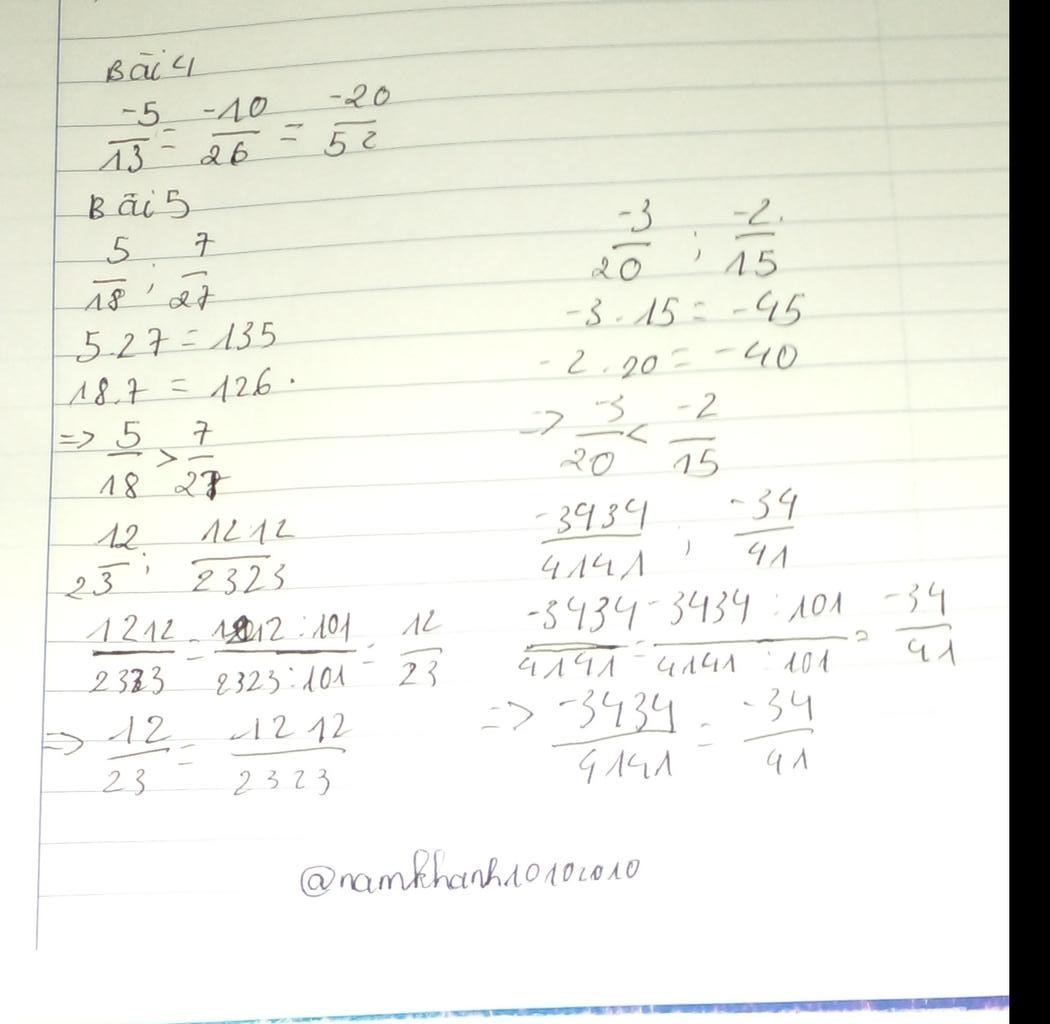 Bài 4
-5/13 = -10/26 = -20/52
Bài 5
5/18 ; 7/27
5.27 = 135
18.7 = 126.
=> 5/18 > 7/27
12/23 ; 1212/2323
1212/2323 = 1212:101/2323:101 = 12/23
=> 12/23 = 1212/2323
-3/20 ; -2/15
-3.15 = -45
-2.20 = -40
=> -3/20 < -2/15
-3434/4141 ; -34/41
-3434/4141 = -3434:101/4141:101 = -34/41
=> -3434/4141 = -34/41
@namkhanh10102010